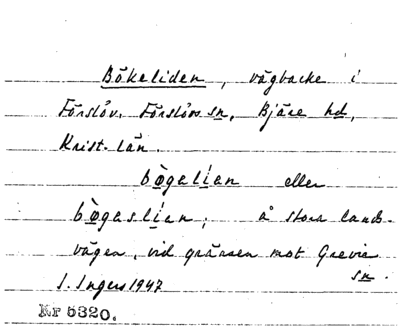 Bökeliden, vägbacke i
Förslöv. Förslövs sn, Bjäre hd,
Krist. län.
bøgalian eller
bøgaslian; å stora lands-
vägen, vid gränsen mot Grevie
sn.
I. Ingers 1947
Kr 5320.